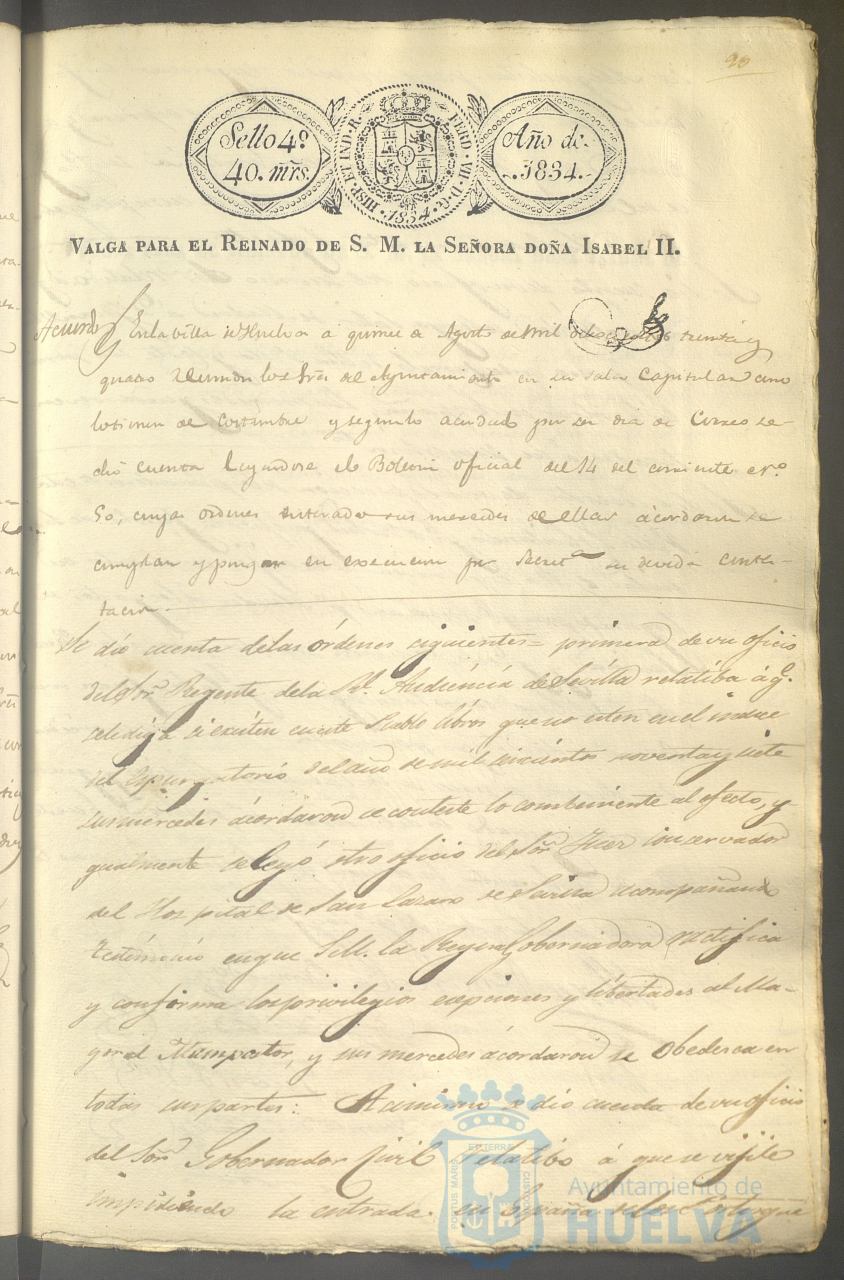 90
Sello 4º
40. mrs.
HISP. ET IND. R. FERD. VII. D. G. 1834.
Año de
1834.
VALGA PARA EL REINADO DE S. M. LA SEÑORA DOÑA ISABEL II.
Acuerdo
En la villa de Huelva a quince de Agosto de mil ochocientos treinta y
quatro reunidos los Sres del Ayuntamiento en su sala Capitular como
lo tienen de costumbre y segun lo acordado por ser dia de Correo se
dió cuenta leyendose el Boletin oficial del 14 del corriente nº
50, cuyas ordenes enterados sus mercedes de ellas acordaron se
cumplan y pongan en execucion por Secretª su devida contes-
tacion.
Se dió cuenta de las órdenes siguientes = primera de un oficio
del Sor Regente de la Rl. Audiéncia de Sevilla relatiba á q.
se le diga si existen en este Pueblo libros que no esten en el indice
del Espurgatorio del año de mil setecientos noventa y siete
sus mercedes ácordaron se conteste lo combeniente al efecto, y
gualmente se leyó otro oficio del Sor Juez conservador
del Hospital de San Lazaro de Sevilla acompañando
testimonio en que S.M. la Reyna Gobernadora ratifica
y confirma los privilegios esepciones y libertades al Ma-
yoral Ampostor, y sus mercedes ácordaron se obedesca en
todas sus partes: Acimismo se dio cuenta de un oficio
del Sor Gobernador Civil relatibo á que se vijile
impidiendo la entrada en España de los Portugue
PORTUS MARIS ET TERRE CUSTODIA
Ayuntamiento de
HUELVA